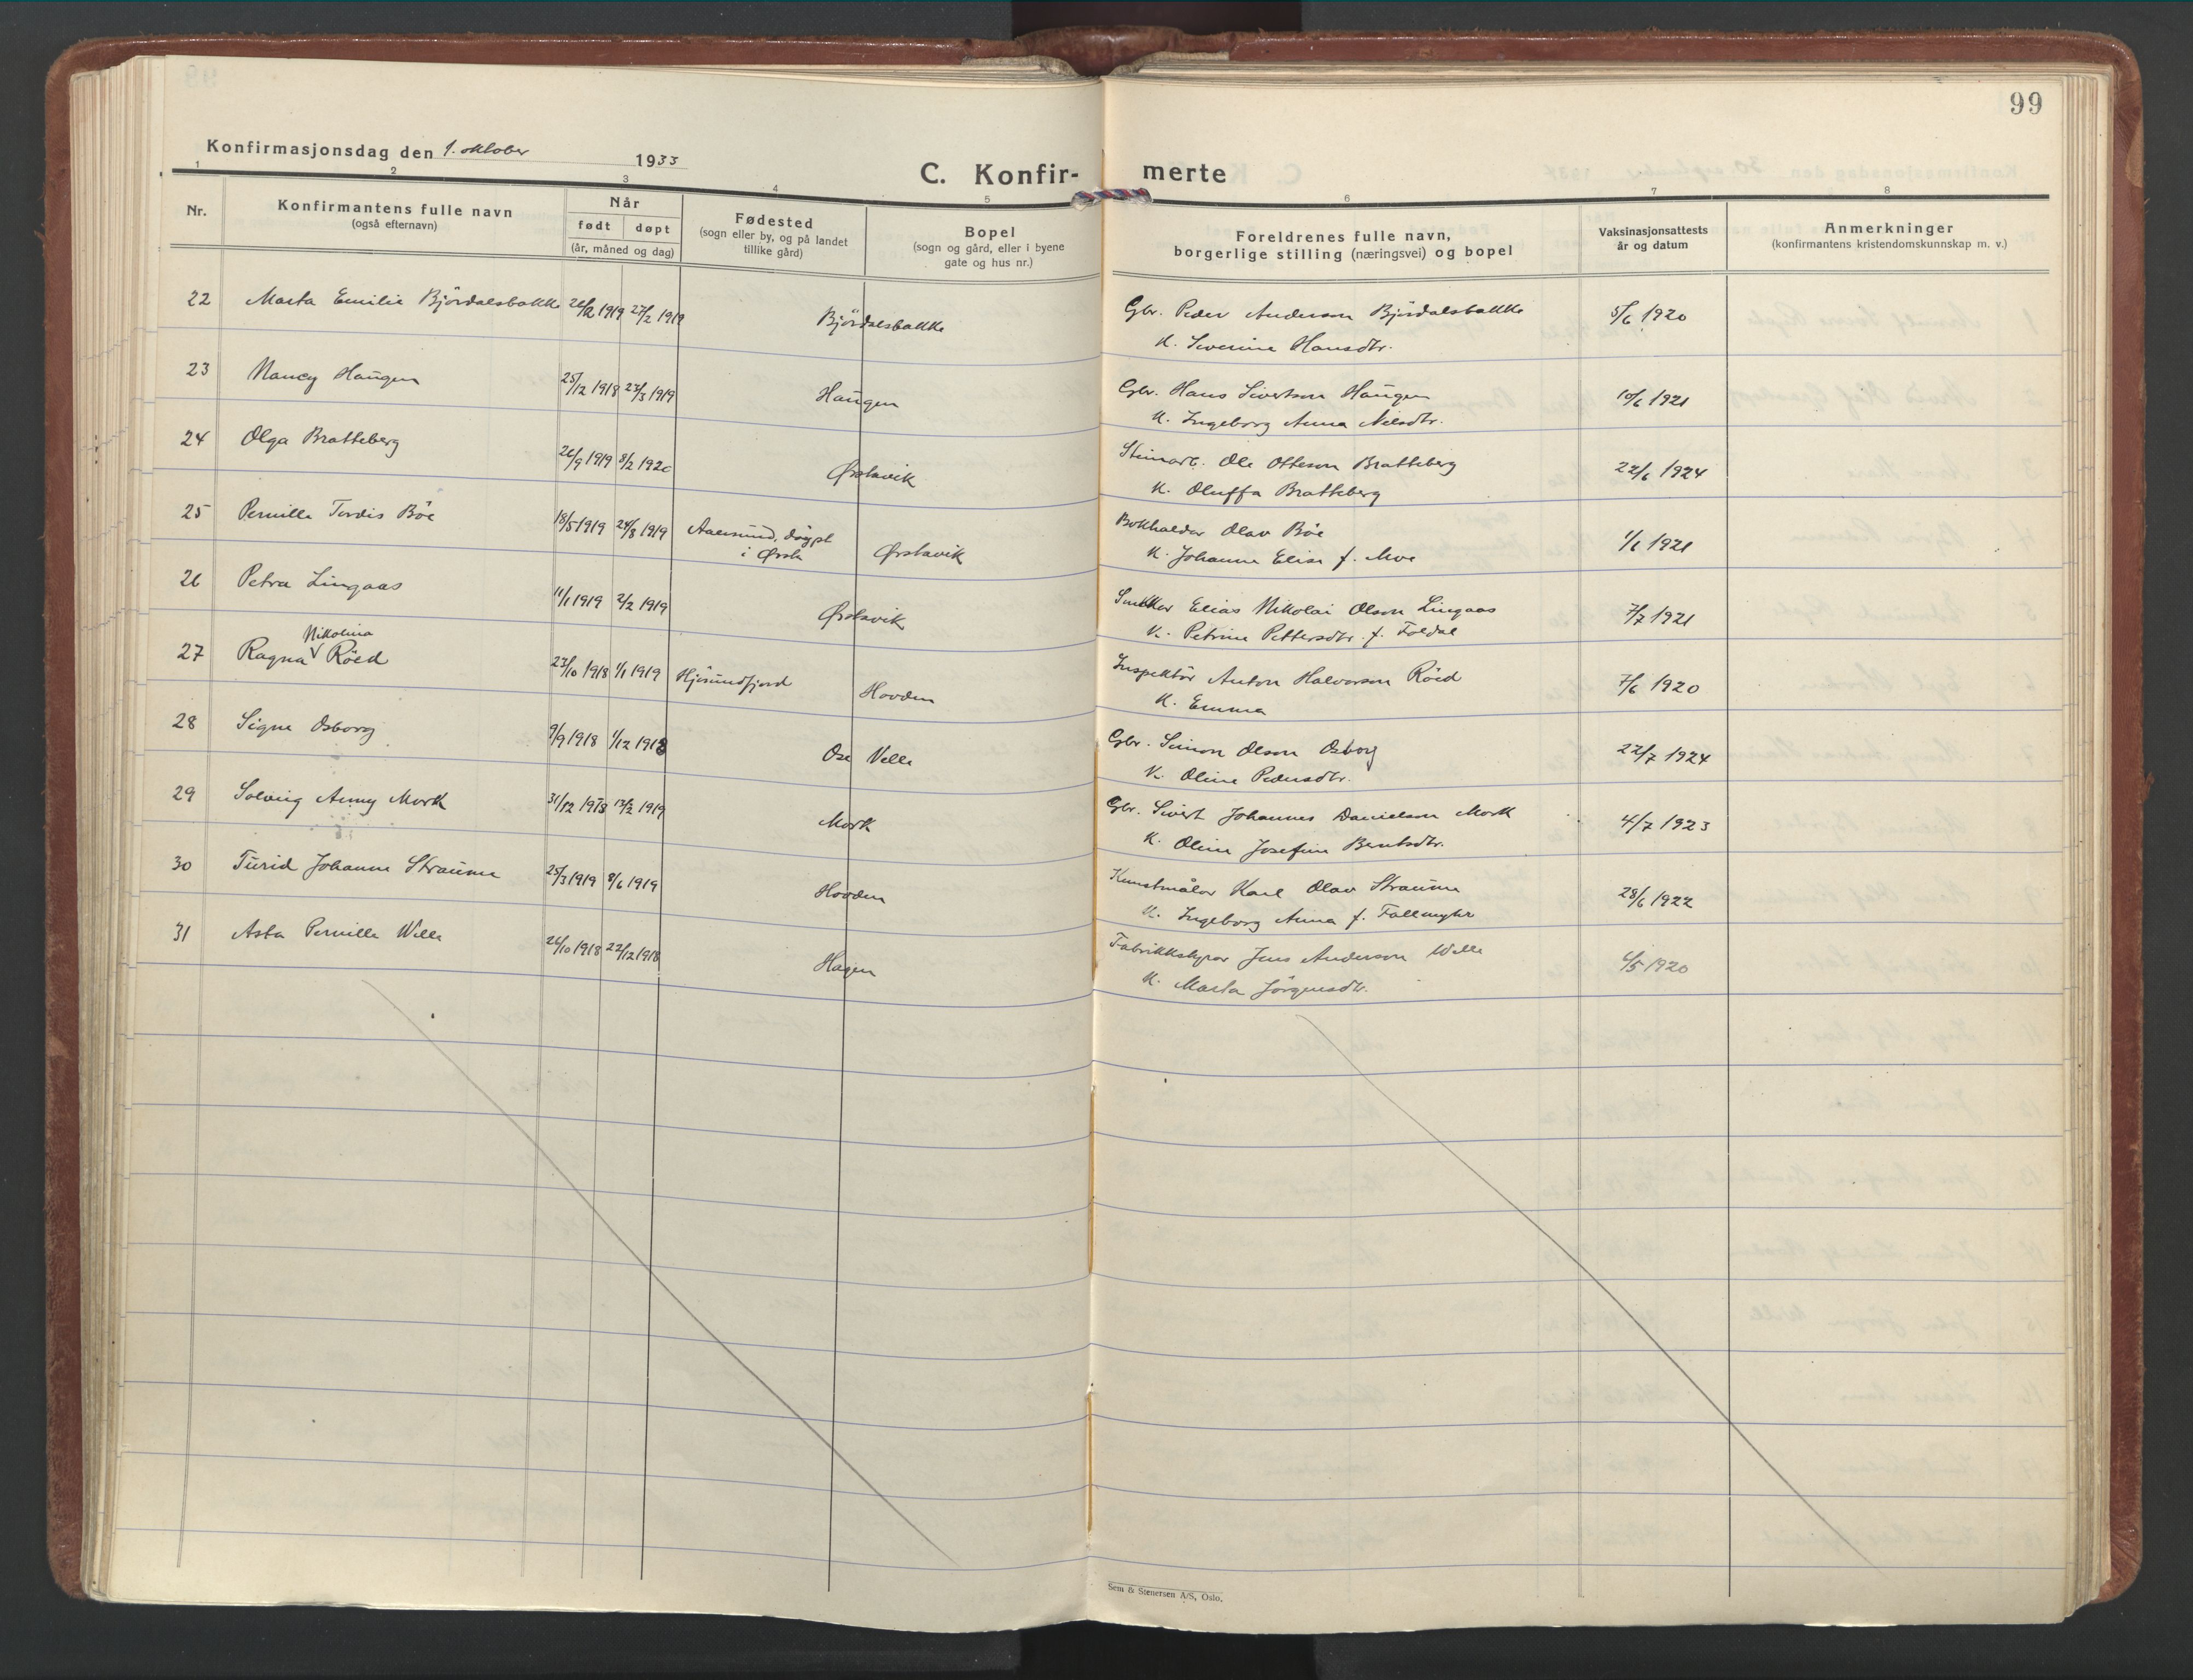 99
Konfirmasjonsdag den 1. oktober 1933
C. Konfir- merte
1 2 3 4 5 6 7 8
Nr.
Konfirmantens fulle navn
(også efternavn)
Når
født døpt
(år, måned og dag)
Fødested
(sogn eller by, og på landet
tillike gård)
Bopel
(sogn og gård, eller i byene
gate og hus nr.)
Foreldrenes fulle navn,
borgerlige stilling (næringsvei) og bopel
Vaksinasjonsattests
år og datum
Anmerkninger
(konfirmantens kristendomskunnskap m. v.)
22 Marta Emilie Björdalsbakke 1919 27/2 1919 Björdalsbakke Gbr. Peder Anderson Björdalsbakke 5/6 1920
K. Severine Hansdtr.
23 Nancy Haugen 25/12 1918 23/3 1919 Haugen Gbr. Hans Sivertson Haugen 10/6 1921
K. Ingeborg Anna Nilsdtr.
24 Olga Bratteberg 26/9 1919 8/2 1920 Ørstavik Steinarb. Ole Otteson Bratteberg 22/6 1924
K. Oluffa Bratteberg
25 Pernille Tordis Böe 18/5 1919 24/8 1919 Aalesund, döypt Ørstavik Bokhaldar Olav Böe 1/6 1921
i Ørsta K. Johanne Elise f. Moe
26 Petra Lingaas 11/1 1919 2/2 1919 Ørstavik Snikkar Elias Nikolai Olson Lingaas 7/7 1921
K. Petrine Pettersdtr. f. Foldal
Nikolina
27 Ragna V Röed 23/10 1918 1/1 1919 Hjörundfjord Hovden Inspektör Anton Halvorson Röed 7/6 1920
K. Emma
28 Signe Osborg 9/9 1918 1/12 1918 Ose Velle Gbr. Simon Olson Osborg 22/7 1924
K. Oline Pedersdtr.
29 Solveig Anny Mork 31/12 1918 1919 Mork Gbr. Sivert Johannes Danielson Mork 4/7 1923
K. Oline Josefine Berntsdtr.
30 Turid Johanne Straume 25/3 1919 8/6 1919 Hovden Kunstmålar Karl Olav Straume 28/6 1922
K. Ingeborg Anna f. Fallmyhr
31 Asta Pernille Welle 26/10 1918 22/12 1918 Hagen Fabrikkstyrar Jens Anderson Welle 6/5 1920
K. Marta Jörgensdtr.
Sem & Stenersen A/S, Oslo.